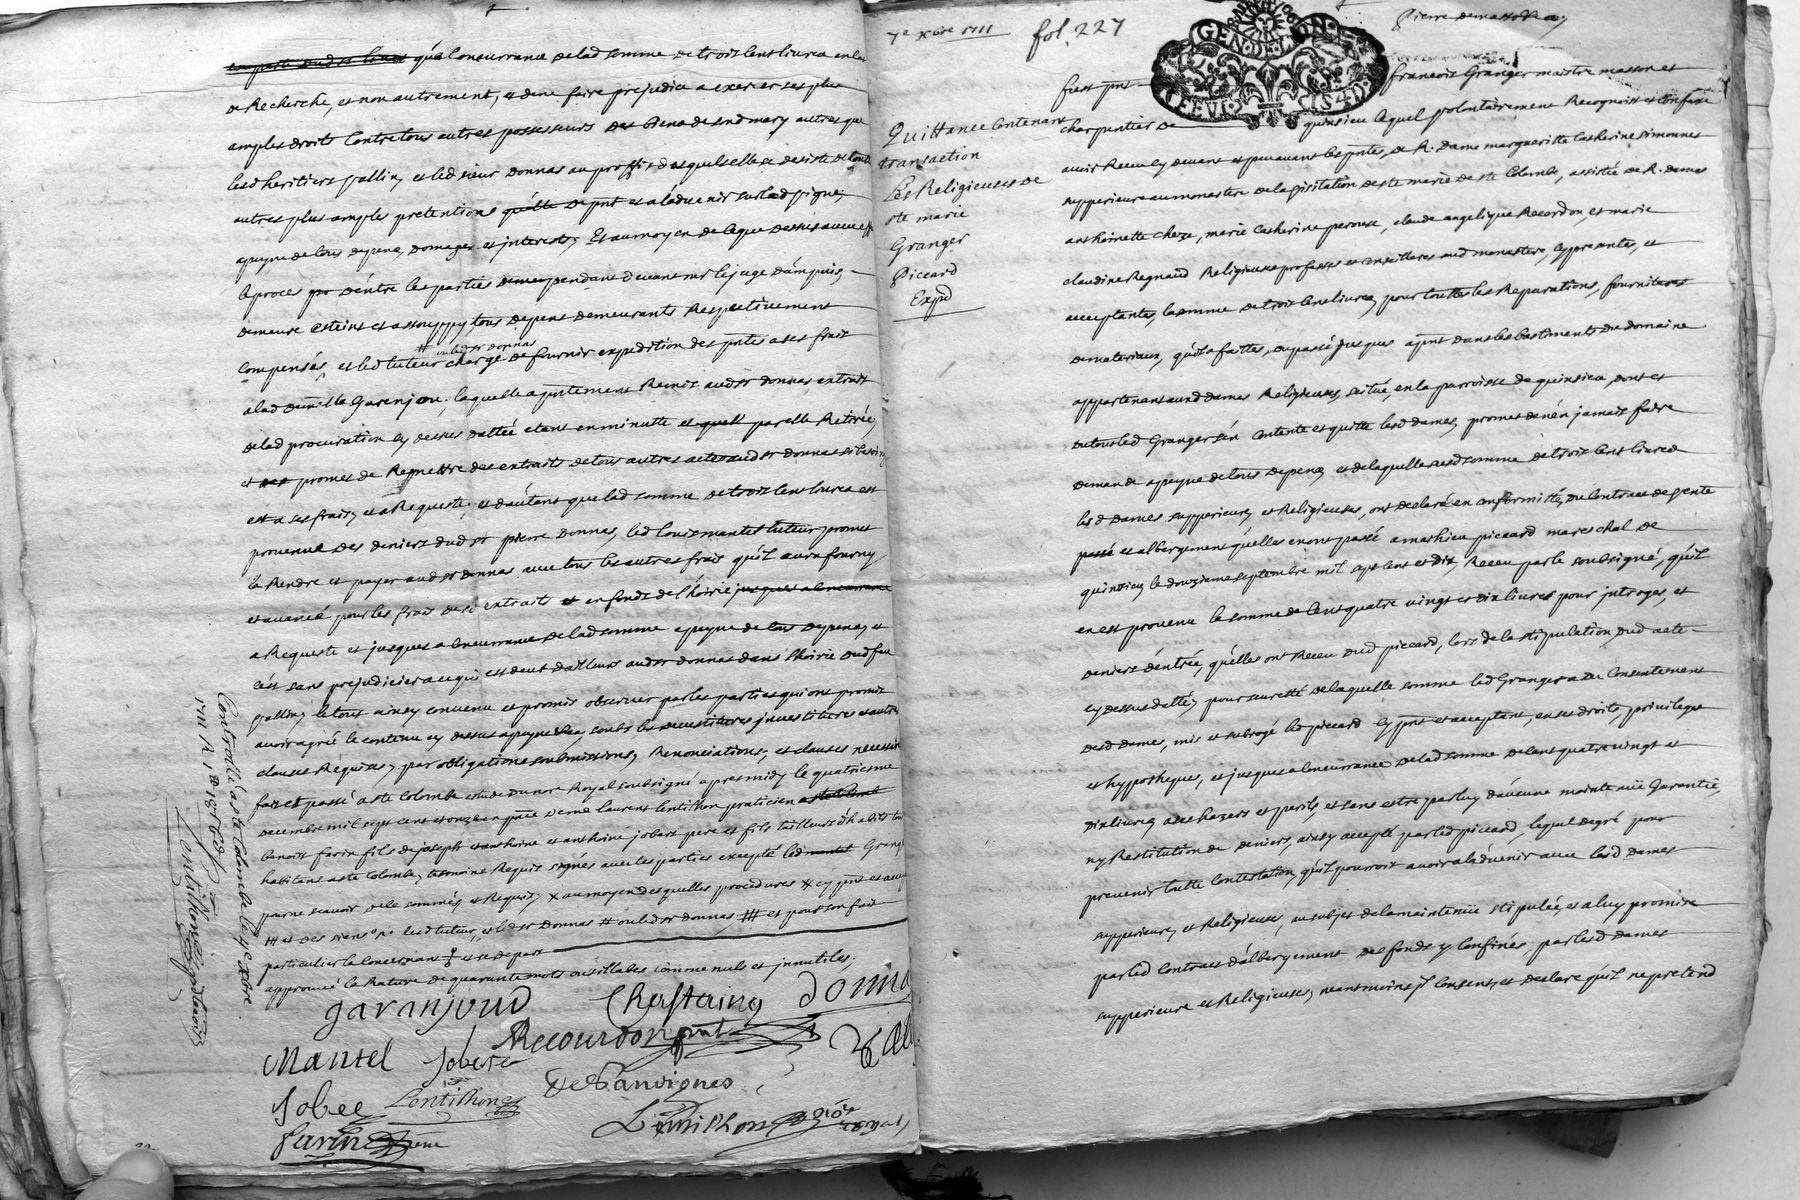 qu'a concurrance de lad somme de trois cent livres en cas
de Recherche, et non autrement, et sans faire prejudice a exercer ses plus
amples droits contre tous autres possesseurs des biens dud mary autres que
lesd heritiers gallin, et led sieur donnas au proffit desquels elle se desiste de tous
autres plus amples pretentions
a peyne de tous depens, domages et interests, Et au moyen de ce que dessus
le proces d'entre les parties pendant devant mr le juge d'ampuis,
demeure esteint et assouppy, tous depens demeurants Respectivement
compensés, et led tuteur chargé de fournir expedition des pntes a ses frais
# ou led sr donnas
a lad dem.lle Garenjou, laquelle a pntement Remis aud sr donnas extrait
de lad procuration cy dessus dattée etant en minutte par elle Retirée,
et promet de Remettre des extraits de tous autres actes aud sr donnas
a ses frais, et a Requeste, et d'autant que lad somme de trois cent livres est
provenue des deniers dud sr pierre donnas, led louis mantel tuteur promet
la Rendre et payer aud sr donnas avec tous les autres frais qu'il aura fourny
et avancé pour les frais desd extraits en fonds de l'hoirie
a Requeste et jusques a concurrance de lad somme a peyne de tous depens, et
c'est sans prejudicier a ce qui est deub d'ailleurs aud sr donnas dans l'hoirie dud feu
gallin, le tout ainsy convenu et promis observer par les parties qui ont promis
avoir agréé le contenu cy dessus a peyne
clauses Requises, par obligations soubmissions, Renonciations, et clauses necessaires
fait et passé a ste Colombe estude du nore Royal soubsigné apres midy le quatriesme
decembre mil sept cent et onze en pnce de me laurent lentilhon praticien
benoist farin fils de joseph et anthoine et anthoine jobert pere et fils tailleurs d'habits
habitans a ste Colombe, tesmoins Requis signés avec les parties excepté led Granger
pour ne scavoir de ce sommés et Requis, x au moyen desquelles procedures
et led sr donnas # ou led sr donnas ## et pour son fait
particulier la concernant
approuvé la Rature de quarante mots ou sillabes comme nuls et innutiles,
garanjoud Chastaing donna
Mantel Jobert Recourdon pnt
Jobet Lentilhon
Farin Lentilhon nore royal
Controllé a ste Colombe le 7e xbre
1711
Lentilhon
7e xbre 1711 fol. 227
GEN. DE LION
Quittance Contenant
transaction
Les Religieuses de
ste marie
Granger
Piccard
Expd
fust pnt francois Granger maistre masson et
charpentier de quinsieu lequel volontairement Recognoit et confesse
avoir Receu cy devant et peu avant les pntes, de R. Dame marguerite Catherine simonnet
supperieure au monastere de la visitation de ste marie de ste Colombe, assistée de R. dames
anthoinette cheze, marie Catherine perouse, claude angelique Recordon, et marie
claudine Regnaud Religieuses professes et conseilleres aud monastere, cy presentes, et
acceptantes, la somme de trois cent livres, pour touttes les Reparations, fournitures
de materiaux, qu'il a faittes, du passé jusques a pnt dans les bastiments du domaine
appartenant aux d dames Religieuses, situé, en la parroisse de quinsieu, dont et
du tout led Granger s'en contente et quitte lesd dames, promet de n'en jamais faire
demande a peyne de tous depens, et de laquelle susd somme de trois cent livres
lesd dames supperieure, et Religieuses, ont declaré en conformitté, du Contract de vente
et albergement qu'elles en ont passé a mathieu piccard mareschal de
quinsieu, le douzieme septembre mil sept cent et dix, Receu par le soubsigné, qu'il
en est provenu la somme de Cent quatre vingt et dix livres pour introges, et
deniers d'entrée, qu'elles ont Receu dud piccard, lors de la stipulation dud acte
cy dessus datté, pour suretté de laquelle somme led Granger a du Consentement
desd dames, mis et subrogé led piccard cy pnt et acceptant, en ses droits, privileges
et hypotheques, et jusques a concurrance de lad somme de cent quatre vingt et
dix livres, a ses hazers et perils, et sans estre par luy d'aucune maintenüe Garantie,
ny Restitution de deniers, ainsy accepté par led piccard, lequel degré pour
prevenir toutte Contestation, qu'il pourroit avoir a l'advenir avec lesd dames
supperieure, et Religieuses, au subjet de la maintenüe stipulée, et a luy promise
par led Contract d'albergement des fonds y confinés, par lesd dames
supperieure et Religieuses, neantmoins il Consent, et declare qu'il ne pretend